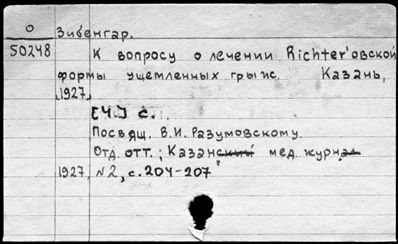 О Зивенгар.
50248 К вопросу о лечении Richter'овской
формы ущемленных грыж. Казань,
1927,
[4.] с.
Посвящ. В.И. Разумовскому.
Отд. отт.; Казанский мед. журнал
1927, №2, с. 204-207